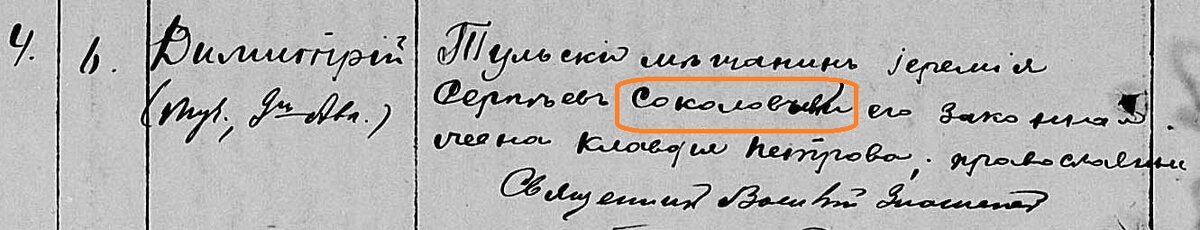 4.
6.
Димитрій
(муч., 9го Авг.)
Тульскій мѣщанинъ Іеремія
Сергѣевъ Соколовъ и его законная
жена Клавдія Петрова, православные.
Священникъ Василій